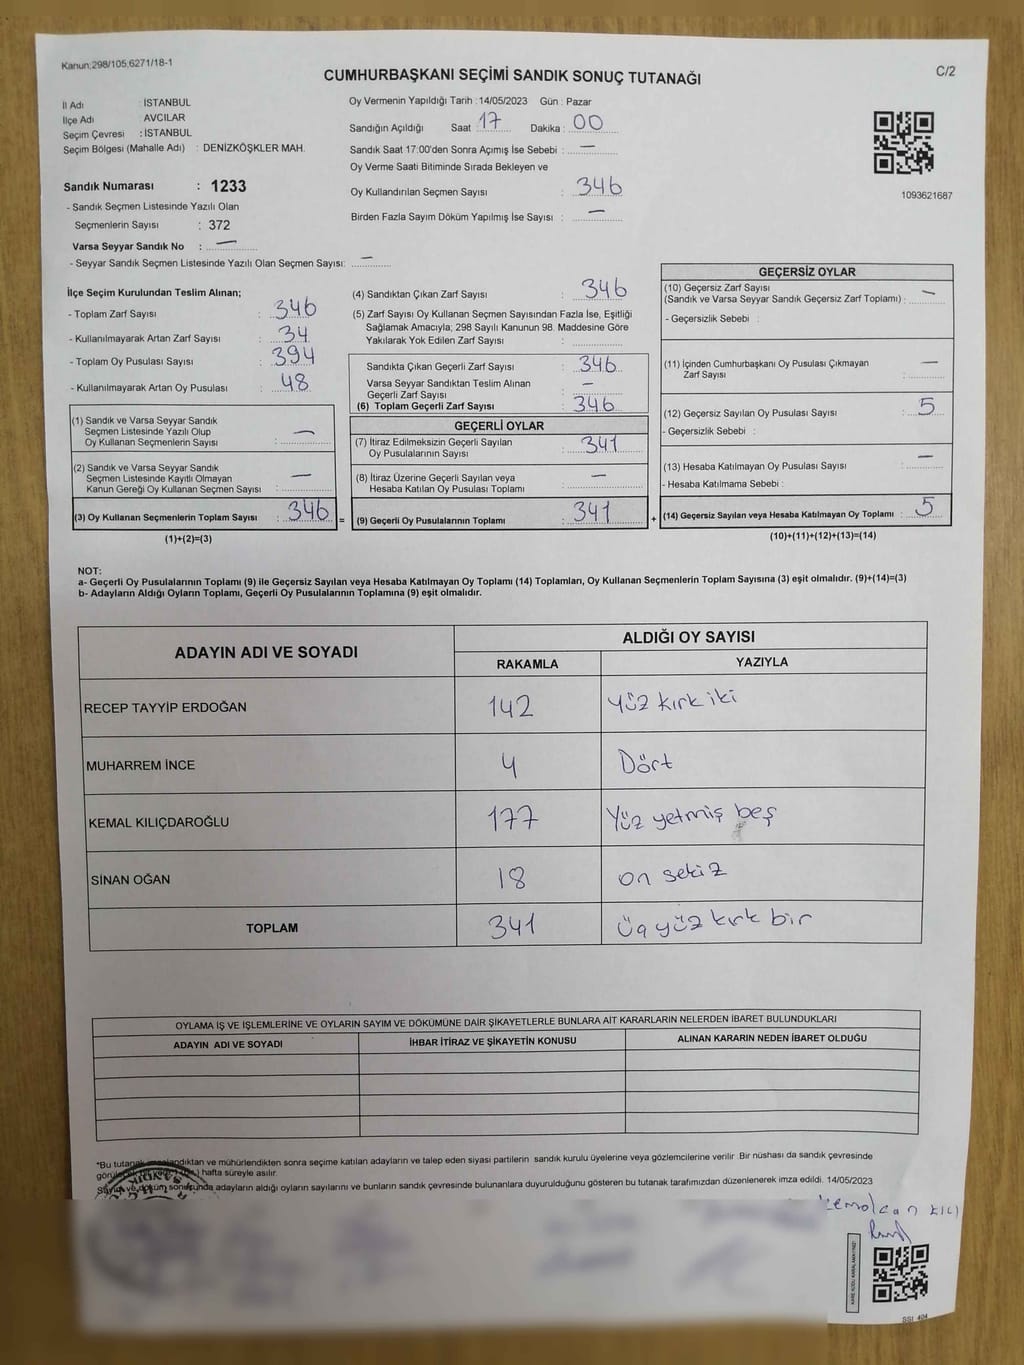 Kanun:298/105;6271/18-1
C/2
CUMHURBAŞKANI SEÇİMİ SANDIK SONUÇ TUTANAĞI
İl Adı : İSTANBUL
İlçe Adı : AVCILAR
Seçim Çevresi : İSTANBUL
Seçim Bölgesi (Mahalle Adı) : DENİZKÖŞKLER MAH.
Sandık Numarası : 1233
- Sandık Seçmen Listesinde Yazılı Olan
Seçmenlerin Sayısı : 372
Varsa Seyyar Sandık No : —
- Seyyar Sandık Seçmen Listesinde Yazılı Olan Seçmen Sayısı: —
Oy Vermenin Yapıldığı Tarih :14/05/2023 Gün : Pazar
Sandığın Açıldığı Saat 17 Dakika : 00
Sandık Saat 17:00'den Sonra Açımış İse Sebebi : —
Oy Verme Saati Bitiminde Sırada Bekleyen ve
Oy Kullandırılan Seçmen Sayısı : 346
Birden Fazla Sayım Döküm Yapılmış İse Sayısı : —
1093621687
İlçe Seçim Kurulundan Teslim Alınan;
- Toplam Zarf Sayısı : 346
- Kullanılmayarak Artan Zarf Sayısı : 34
- Toplam Oy Pusulası Sayısı : 394
- Kullanılmayarak Artan Oy Pusulası : 48
(1) Sandık ve Varsa Seyyar Sandık
Seçmen Listesinde Yazılı Olup
Oy Kullanan Seçmenlerin Sayısı : —
(2) Sandık ve Varsa Seyyar Sandık
Seçmen Listesinde Kayıtlı Olmayan
Kanun Gereği Oy Kullanan Seçmen Sayısı : —
(3) Oy Kullanan Seçmenlerin Toplam Sayısı : 346
(1)+(2)=(3)
(4) Sandıktan Çıkan Zarf Sayısı : 346
(5) Zarf Sayısı Oy Kullanan Seçmen Sayısından Fazla İse, Eşitliği
Sağlamak Amacıyla; 298 Sayılı Kanunun 98. Maddesine Göre
Yakılarak Yok Edilen Zarf Sayısı :
Sandıkta Çıkan Geçerli Zarf Sayısı : 346
Varsa Seyyar Sandıktan Teslim Alınan
Geçerli Zarf Sayısı : —
(6) Toplam Geçerli Zarf Sayısı : 346
GEÇERLİ OYLAR
(7) İtiraz Edilmeksizin Geçerli Sayılan
Oy Pusulalarının Sayısı : 341
(8) İtiraz Üzerine Geçerli Sayılan veya
Hesaba Katılan Oy Pusulası Toplamı : —
= (9) Geçerli Oy Pusulalarının Toplamı : 341 +
GEÇERSİZ OYLAR
(10) Geçersiz Zarf Sayısı
(Sandık ve Varsa Seyyar Sandık Geçersiz Zarf Toplamı) : —
- Geçersizlik Sebebi :
(11) İçinden Cumhurbaşkanı Oy Pusulası Çıkmayan
Zarf Sayısı : —
(12) Geçersiz Sayılan Oy Pusulası Sayısı : 5
- Geçersizlik Sebebi :
(13) Hesaba Katılmayan Oy Pusulası Sayısı : —
- Hesaba Katılmama Sebebi :
(14) Geçersiz Sayılan veya Hesaba Katılmayan Oy Toplamı : 5
(10)+(11)+(12)+(13)=(14)
NOT:
a- Geçerli Oy Pusulalarının Toplamı (9) ile Geçersiz Sayılan veya Hesaba Katılmayan Oy Toplamı (14) Toplamları, Oy Kullanan Seçmenlerin Toplam Sayısına (3) eşit olmalıdır. (9)+(14)=(3)
b- Adayların Aldığı Oyların Toplamı, Geçerli Oy Pusulalarının Toplamına (9) eşit olmalıdır.
ADAYIN ADI VE SOYADI ALDIĞI OY SAYISI
RAKAMLA YAZIYLA
RECEP TAYYİP ERDOĞAN 142 Yüz kırk iki
MUHARREM İNCE 4 Dört
KEMAL KILIÇDAROĞLU 177 Yüz yetmiş beş
SİNAN OĞAN 18 on sekiz
TOPLAM 341 Üç yüz kırk bir
OYLAMA İŞ VE İŞLEMLERİNE VE OYLARIN SAYIM VE DÖKÜMÜNE DAİR ŞİKAYETLERLE BUNLARA AİT KARARLARIN NELERDEN İBARET BULUNDUKLARI
ADAYIN ADI VE SOYADI İHBAR İTİRAZ VE ŞİKAYETİN KONUSU ALINAN KARARIN NEDEN İBARET OLDUĞU
*Bu tutanak imzalandıktan ve mühürlendikten sonra seçime katılan adayların ve talep eden siyasi partilerin sandık kurulu üyelerine veya gözlemcilerine verilir Bir nüshası da sandık çevresinde
hafta süreyle asılır.
Sayım ve döküm sonucunda adayların aldığı oyların sayılarını ve bunların sandık çevresinde bulunanlara duyurulduğunu gösteren bu tutanak tarafımızdan düzenlenerek imza edildi. 14/05/2023
SSI 404